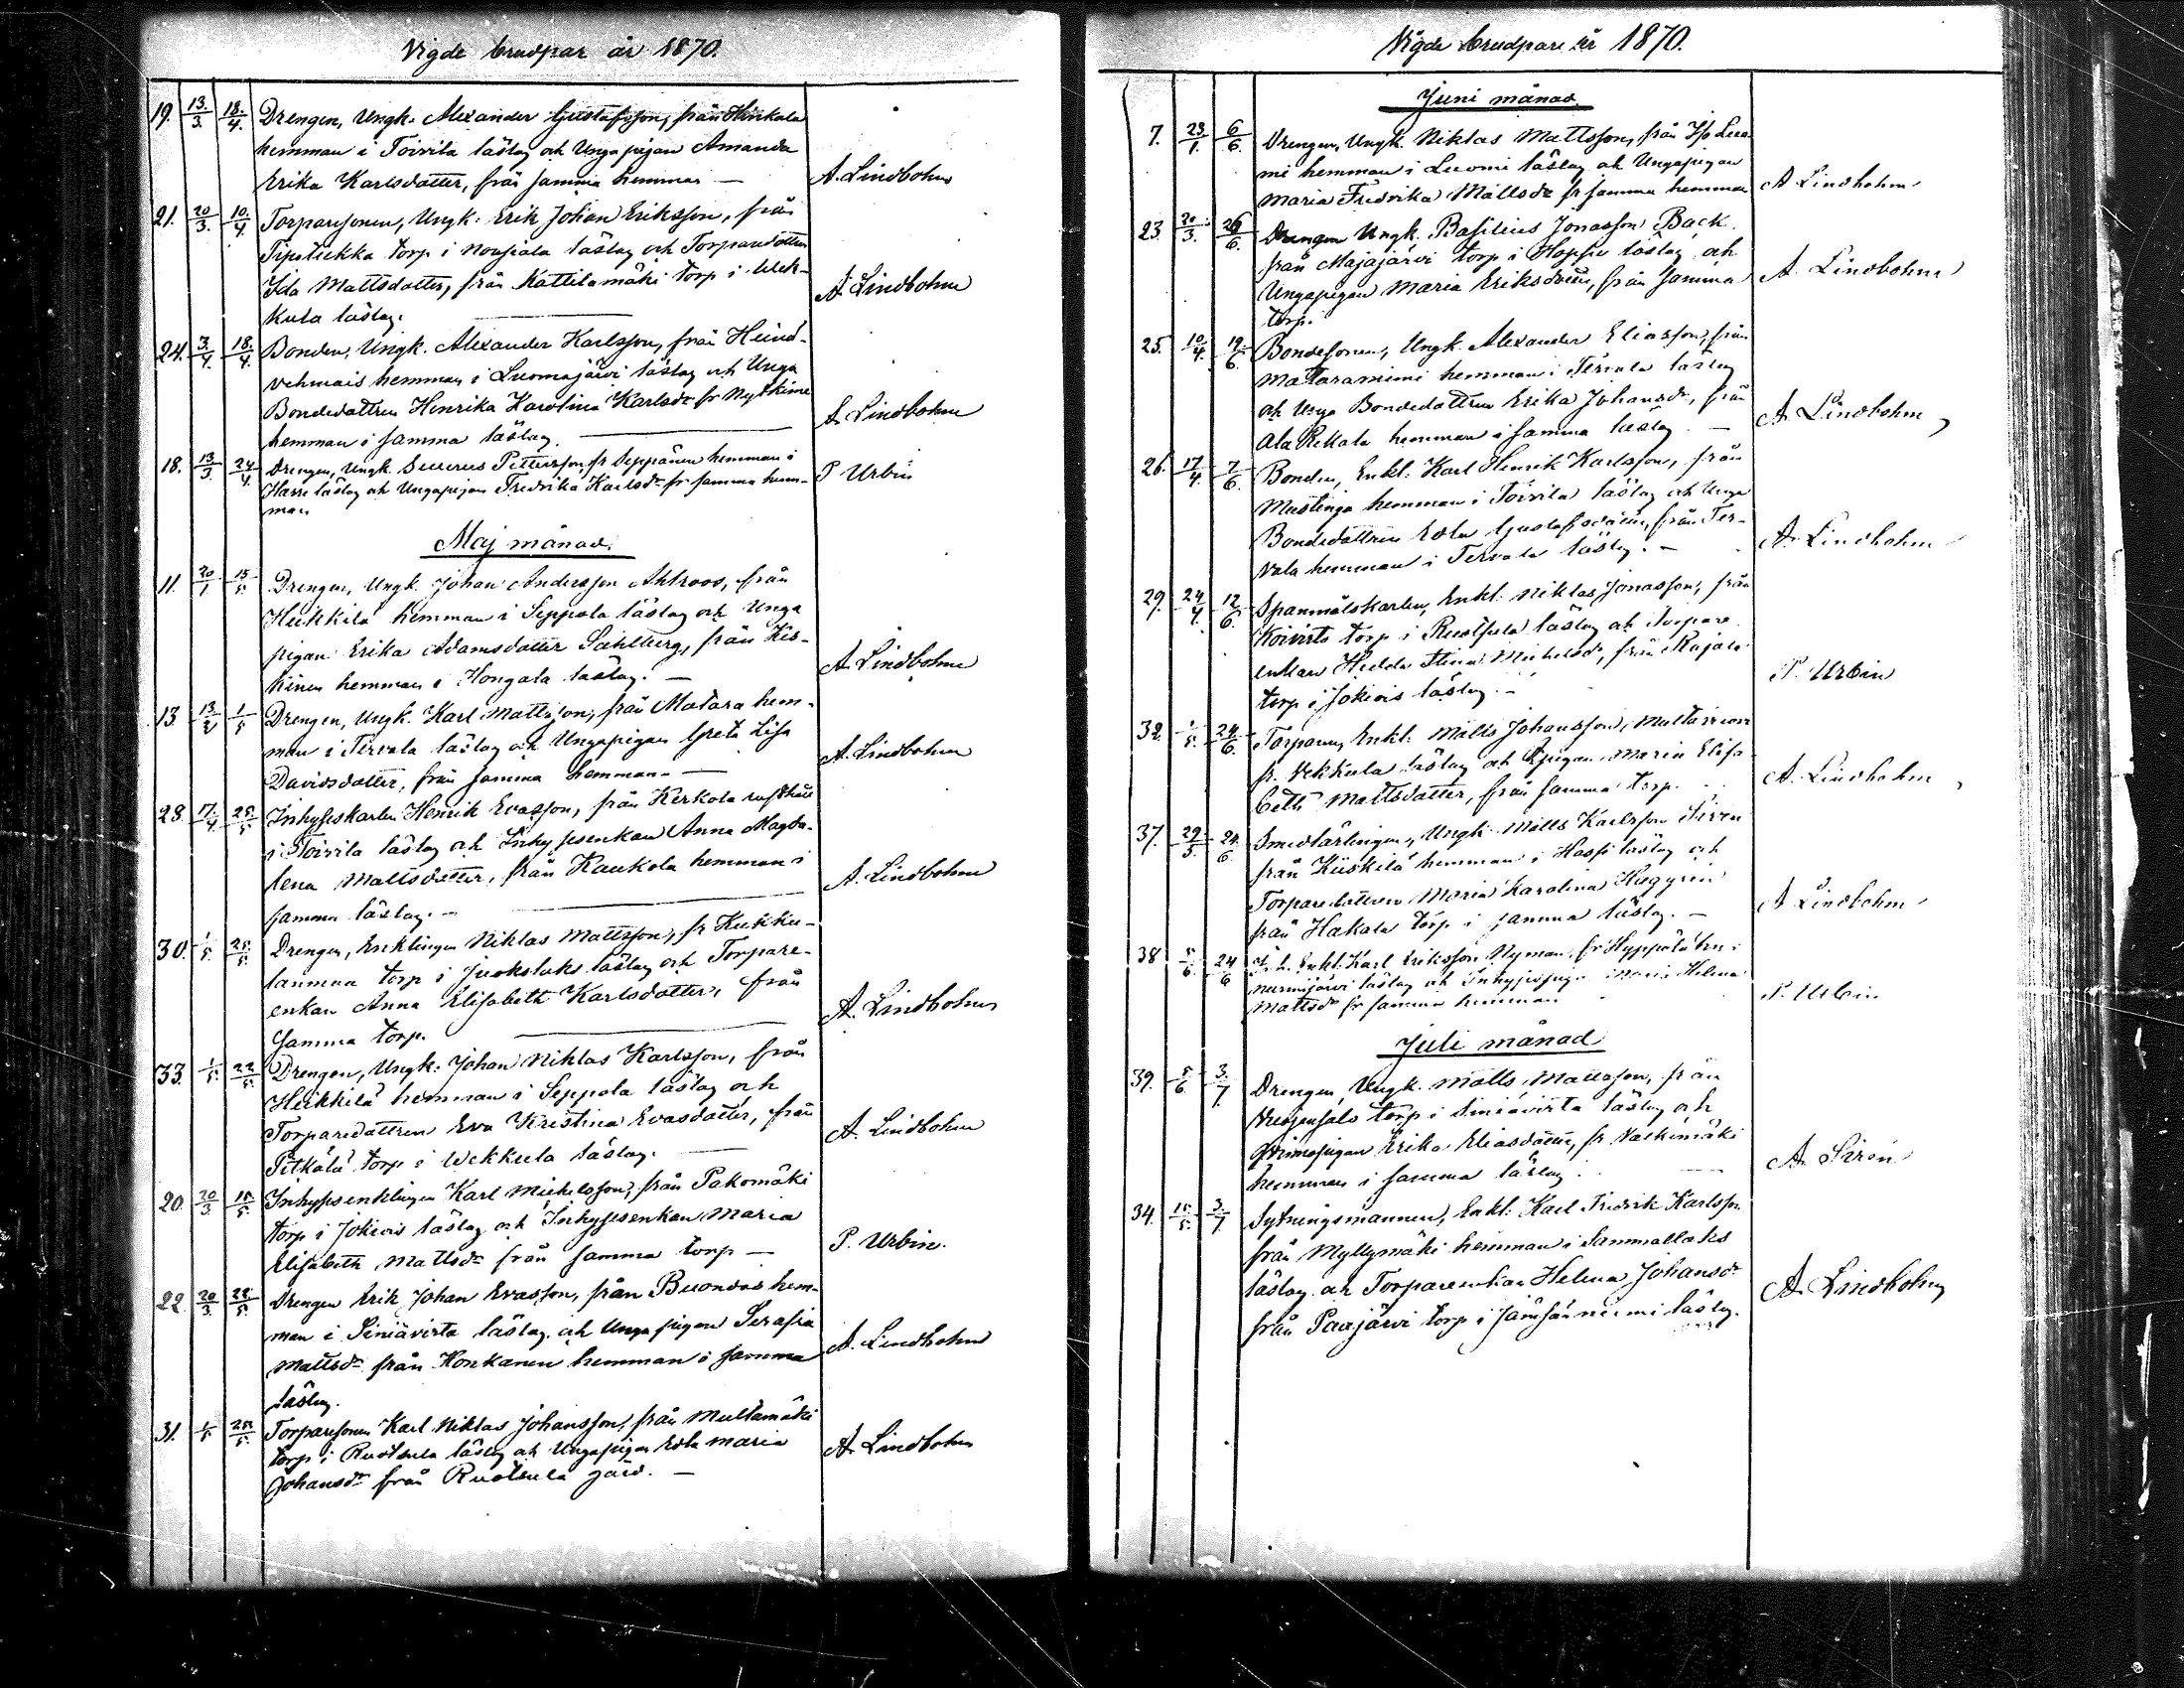 Vigde brudpar år 1870.
19. 13/3. 18/4. Drengen, Ungk. Alexander Gustafsson, från Hinkala
hemman i Toivila låslag och Ungapigan Amanda
Erika Karlsdotter, från samma hemman — A. Lindbohm
21. 20/3. 10/4. Torparesonen, Ungk. Erik Johan Eriksson, från
torp i låslag och Torparedottren
Ida Mattsdotter, från Kattilamäki torp i Wek-
kula låslag. — A. Lindbohm
24. 3/4. 18/4. Bonden, Ungk. Alexander Karlsson, från Heind-
vehmais hemman i Luomajärvi låslag och Unga
Bondedottren Henrika Karolina Karlsdr fr
hemman i samma låslag. — A. Lindbohm
18. 13/3. 24/4. Drengen, Ungk. Pettersson, fr Seppänen hemman i
låslag och Ungapigan Fredrika Karlsdr fr samma hem-
man P Urbin
Maj månad.
11. 20/1. 15/5. Drengen, Ungk. Johan Andersson Ahlroos, från
Heikkilä hemman i Seppola låslag och Unga
pigan Erika Adamsdotter Sahlberg, från Kis-
kinen hemman i Hongala låslag. — A. Lindbohm
13 13/2 1/5 Drengen, Ungk. Karl Mattsson, från Matara hem-
man i Tervala låslag och Ungapigan Greta Lisa
Davidsdotter, från samma hemman. — A. Lindbohm
28. 17/4 25/5 Inhyseskarlen Henrik Evasson, från Kerkola rusthåll
i Toivila låslag och Inhysesenkan Anna Magda-
lena Mattsdotter, från Kaukola hemman i
samma låslag. — A. Lindbohm
30. 1/5. 25/5. Drengen, Enklingen Niklas Mattsson, fr Kukku-
lanmaa torp i Juokslaks låslag och Torpare-
enkan Anna Elisabeth Karlsdotter, från
samma torp. — A. Lindbohm
33. 1/5. 22/5. Drengen, Ungk. Johan Niklas Karlsson, från
Heikkilä hemman i Seppola låslag och
Torparedottren Eva Kristina Evasdotter, från
Pitkälä torp i Wekkula låslag. — A. Lindbohm
20. 20/3. 15/5. Inhysesenklingen Karl Michelsson, från Pakomäki
torp i Jokivis låslag och Inhysesenkan Maria
Elisabeth Mattsdr från samma torp — P. Urbin.
22. 20/3. 22/5. Drengen Erik Johan Evasson, från hem-
man i Siniävirta låslag och Unga pigan Serafia
Mattsdr från Konkanen hemman i samma
låslag. A. Lindbohm
31. 1/5 25/5. Torparesonen Karl Niklas Johansson, från Multamäki
torp i Ruolsula låslag och Ungapigan Edla Maria
Johansdr från Ruolsula gård. — A. Lindbohm
Vigde brudpare år 1870.
Juni månad
7. 23/1. 6/6. Drengen, Ungk. Niklas Mattsson, från Luo-
mi hemman i Luomi låslag och Ungapigan
Maria Fredrika Mattsdr fr samma hemman A Lindbohm
23 20/3. 26/6. Drengen Ungk. Basilius Jonasson Back
från Majajärvi torp i låslag och
Ungapigan Maria Eriksdotter, från samma
torp. A. Lindbohm
25. 10/4. 19/6. Bondesonen, Ungk. Alexander Eliasson, från
Mataraniemi hemman i Tervala låslag
och Unga Bondedottren Erika Johansdr, från
Ala hemman i samma låslag. — A. Lindbohm
26. 17/4. 7/6. Bonden, Enkl. Karl Henrik Karlsson, från
Mustinga hemman i Toivila låslag och Unga
Bondedottren Edla Gustafsdotter, från Ter-
vala hemman i Tervala låslag. — A. Lindbohm
29. 24/4. 12/6. Spanmålskarlen, Enkl. Niklas Jonasson, från
Koivisto torp i låslag och Torpare
enkan Hedda Stina Michelsdr, från Rajala
torp i Jokivis låslag. — P. Urbin
32. 1/5. 24/6. Torparen, Enkl. Matts Johansson,
fr. Vekkula låslag och pigan Maria Elisa
beth Mattsdotter, från samma torp. A. Lindbohm
37. 29/5. 24/6. Smedlärlingen, Ungk. Matts Karlsson Sirén
från Kiiskilä hemman i Hassi låslag och
Torparedottren Maria Karolina
från Hakala torp i samma låslag. — A Lindbohm
38 5/6. 24/6 Enkl. Karl Eriksson Nyman, fr Hyppölä hn i
Nurmijärvi låslag och Inhysespigan Maria Helena
Mattsdr fr samma hemman P. Urbin
Juli månad
39. 5/6. 3/7. Drengen, Ungk. Matts Mattsson, från
torp i Siniävirta låslag och
pigan Erika Eliasdotter, fr Vaskimäki
hemman i samma låslag. — A. Sirén
34. 15/5. 3/7. Sytningsmannen, Enkl. Karl Fredrik Karlsson
från Myllymäki hemman i Sammallaks
låslag och Torpareenkan Helena Johansdr
från Paajärvi torp i Jämsänniemi låslag. A. Lindbohm